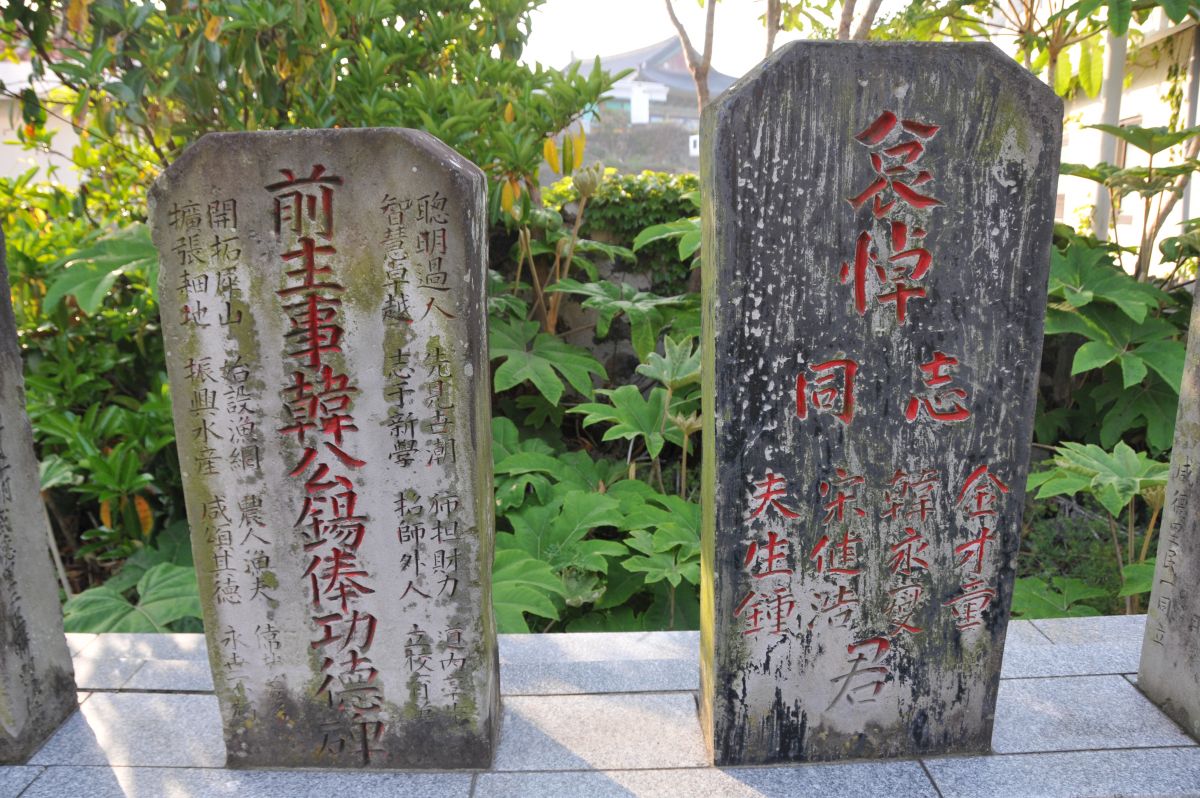 聰明過人 先見 潮 師担財力 道内
智慧卓越 志于新學 招師外人 立校
前主事韓公錫俸功德碑
開拓歷山 始設漁網 農人漁夫
擴張耕地 振興水産 咸頌其德 永
哀悼
同志
金才童
韓永燮
宋健浩
夫生鍾
君
里民一同立